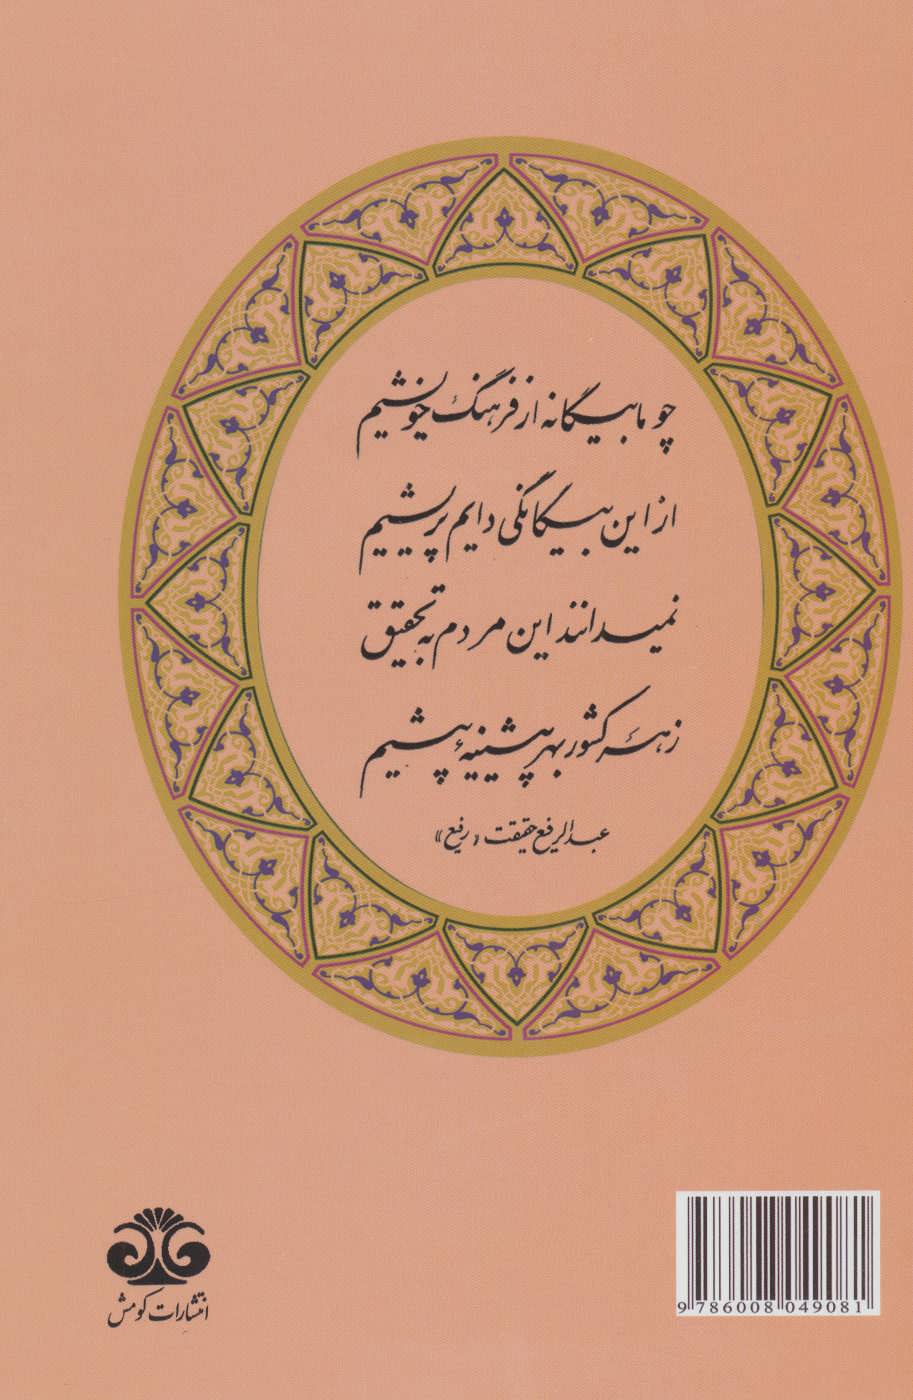 چو ما بیگانه از فرهنگ خویشیم
از این بیگانگی دایم پریشیم
نمیدانند این مردم به تحقیق
ز هر کشور بهر پیشینهٔ پیشیم
عبدالرفیع حقیقت «رفیع»
انتشارات کومش
9 786008 049081